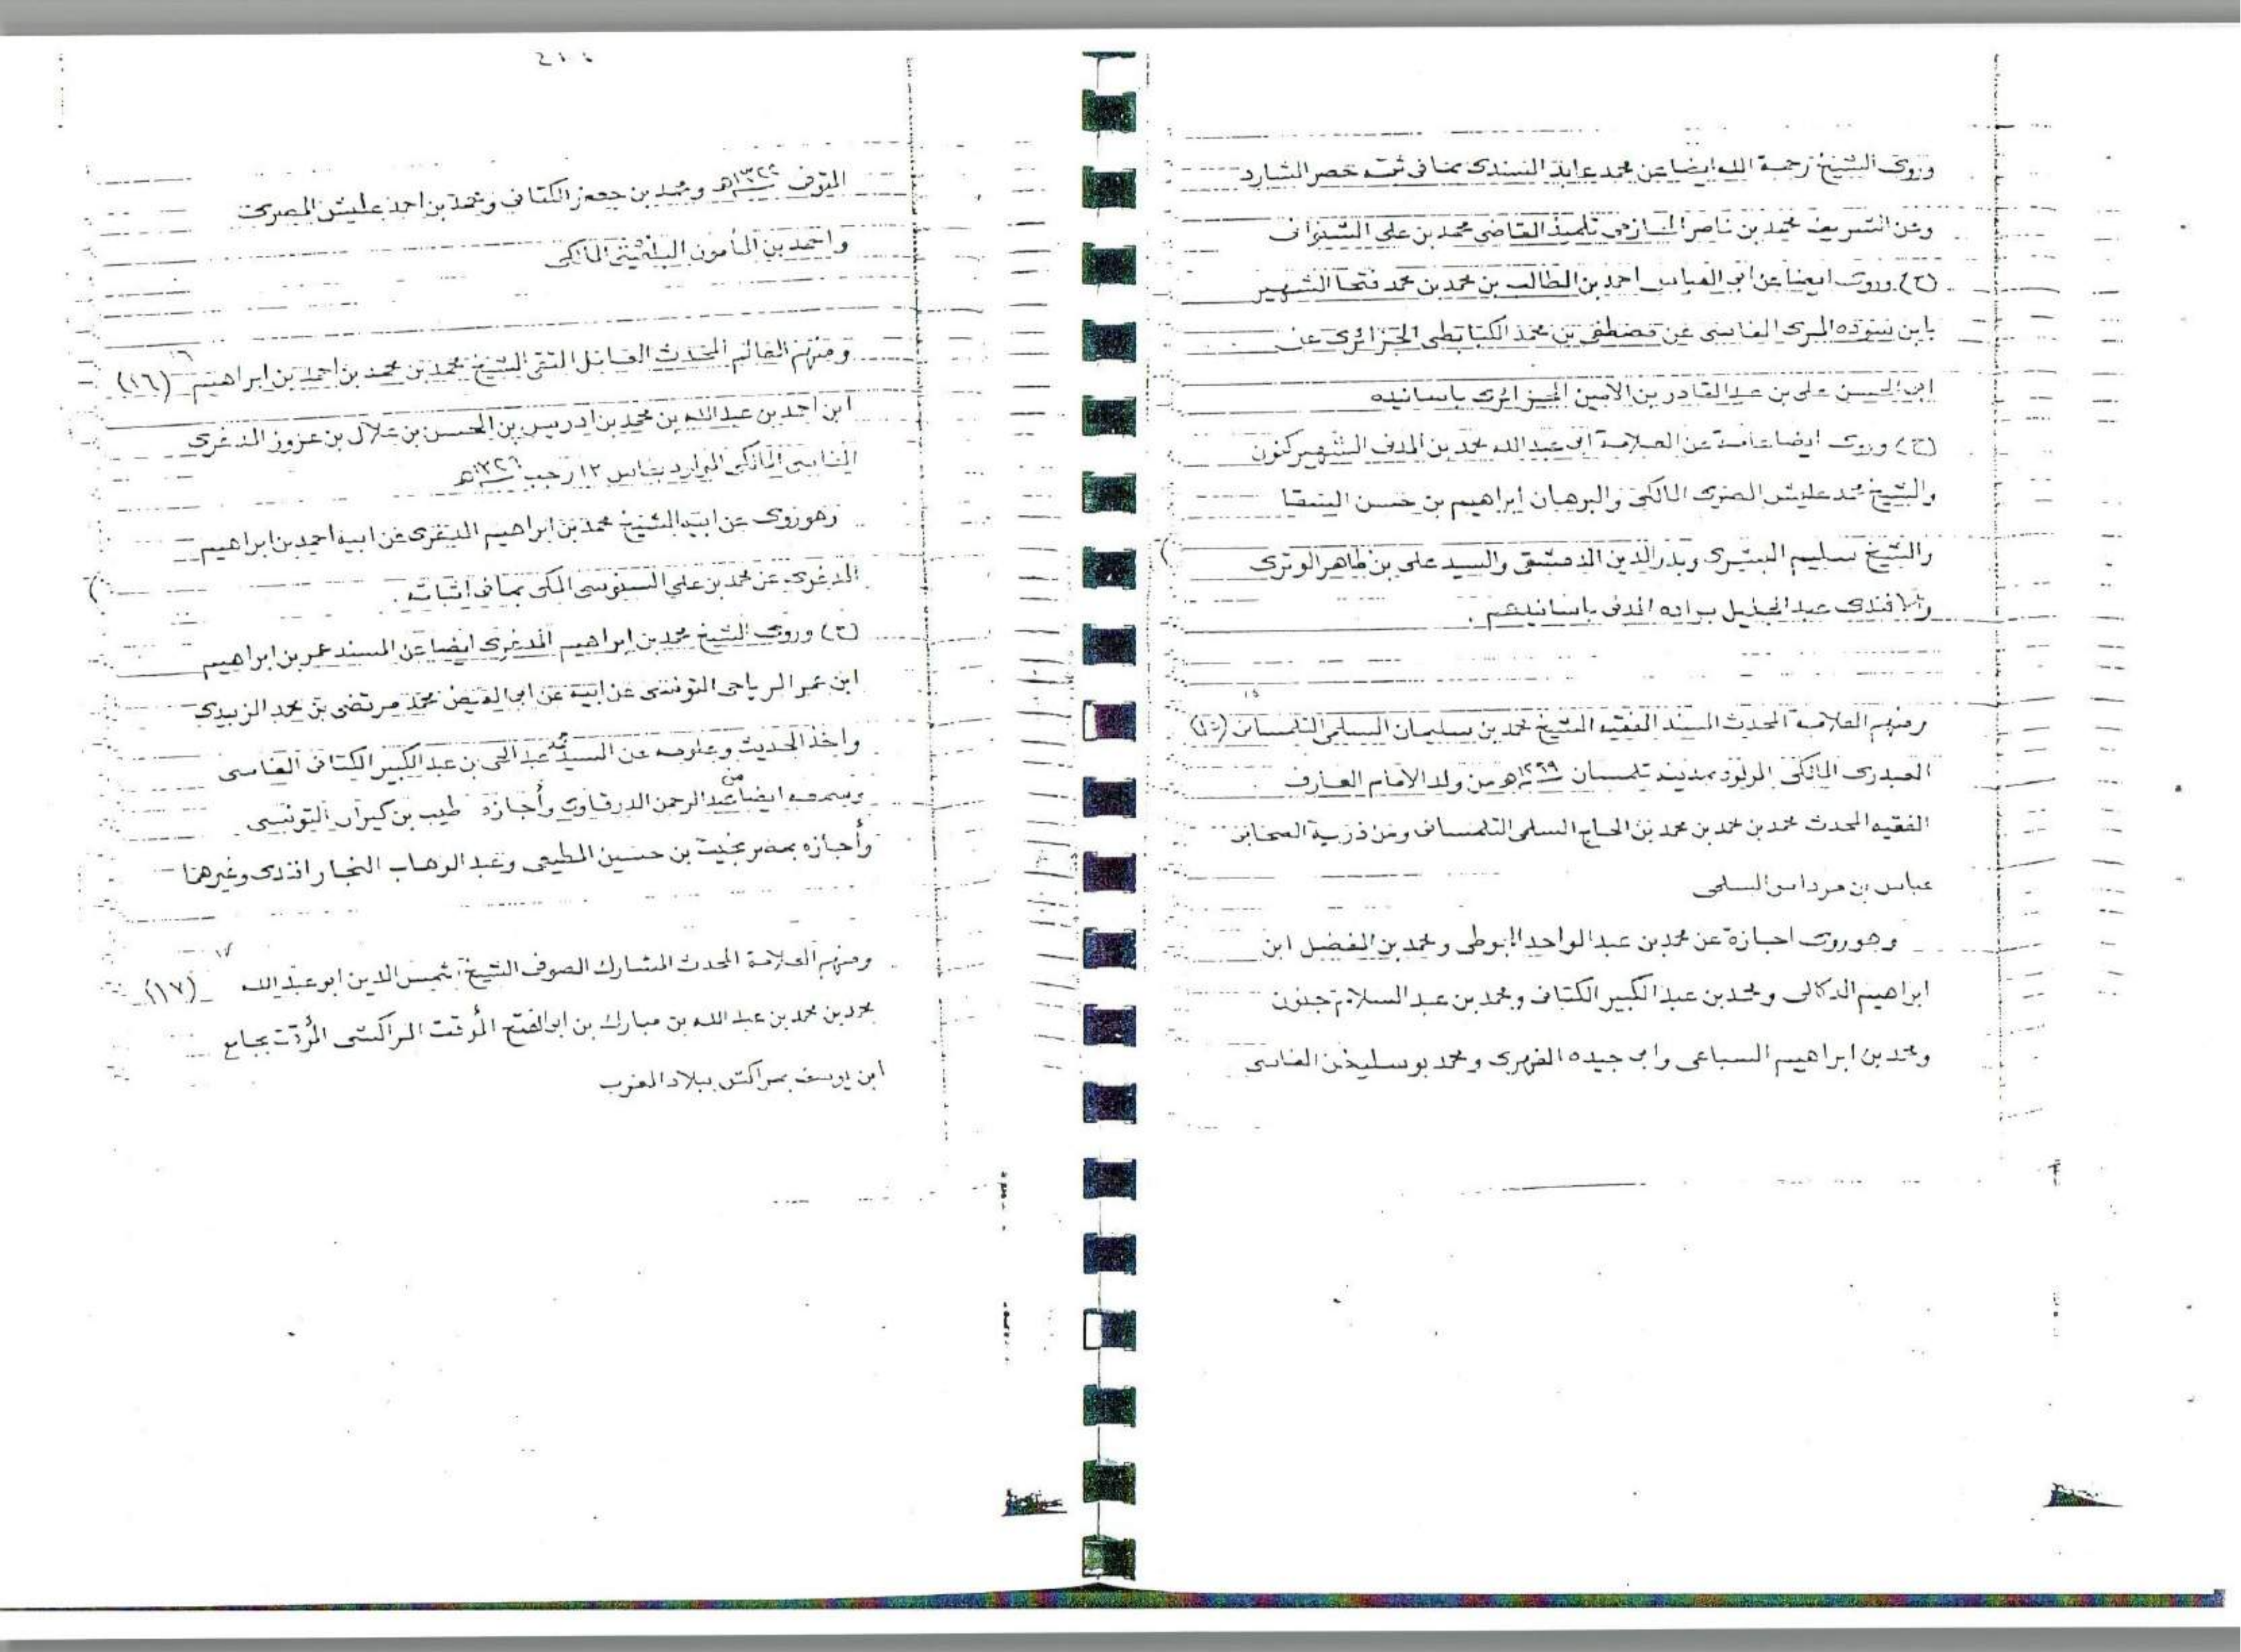 وروى الشيخ رحمة الله ايضا عن محمد عابد السندى بما فى ثبت حصر الشارد
وعن الشريف محمد بن ناصر الحازمى تلميذ القاضى محمد بن على الشوكانى
(ح) وروى ايضا عن ابى العباس احمد بن الطالب بن محمد بن محمد فتحا الشهير
بابن سوده المرى الفاسى عن مصطفى بن محمد الكبابطى الجزائرى عن
ابى الحسن على بن عبد القادر بن الامين الجزائرى باسانيده
(ح) وروى ايضا عامة عن العلامة ابى عبد الله محمد بن المدنى الشهير كنون
والشيخ محمد عليش المصرى المالكى والبرهان ابراهيم بن حسن السقا
والشيخ سليم البشرى وبدر الدين الدمشقى والسيد على بن ظاهر الوترى
وافندى عبد الجليل براده المدنى باسانيدهم .
١٥
ومنهم العلامة المحدث المسند الفقيه الشيخ محمد بن سليمان السلمى التلمسانى (١٥)
العبدرى المالكى المولود بمدينة تلمسان ١٢٦٩هـ من ولد الامام العارف
الفقيه المحدث محمد بن محمد بن محمد بن الحاج السلمى التلمسانى ومن ذرية الصحابى
عباس بن مرداس السلمى
وهو روى اجازة عن محمد بن عبد الواحد و محمد بن المفضل ابن
ابراهيم الدكالى و محمد بن عبد الكبير الكتانى و محمد بن عبد السلام جنون
ومحمد بن ابراهيم السباعى وابى جيده الفهرى و محمد بوسليخن الفاسى
المتوفى ومحمد بن جعفر الكتانى ومحمد بن احمد عليش المصرى
واحمد بن المأمون البلغيثى المالكى
١٦
ومنهم العالم المحدث الفاضل التقى الشيخ محمد بن محمد بن احمد بن ابراهيم (١٦)
ابن احمد بن عبد الله بن محمد بن ادريس بن الحسن بن علال بن عزوز المدغرى
الفاسى المالكى بفاس ١٢ رجب ١٣٢٦هـ
وهو روى عن ابيه الشيخ محمد بن ابراهيم المدغرى عن ابيه احمد بن ابراهيم
المدغرى عن محمد بن على السنوسى المكى بما فى اثباته .
(ح) وروى الشيخ محمد بن ابراهيم المدغرى ايضا عن المسند عمر بن ابراهيم
ابن عمر الرياحى التونسى عن ابيه عن ابى الفيض محمد مرتضى بن محمد الزبيدى
واخذ الحديث وعلومه عن السيد محمد عبد الحى بن عبد الكبير الكتانى الفاسى
وسمع ايضا من عبد الرحمن الدرقاوى وأجازه طيب بن كيران التونسى
وأجازه بمصر بخيت بن حسين المطيعى وعبد الوهاب النجار افندى وغيرهما
١٧
ومنهم العلامة المحدث المشارك الصوفى الشيخ شمس الدين ابو عبد الله (١٧)
محمد بن محمد بن عبد الله بن مبارك بن ابو الفتح المؤقت المراكشى المؤقت بجامع
ابن يوسف بمراكش ببلاد المغرب